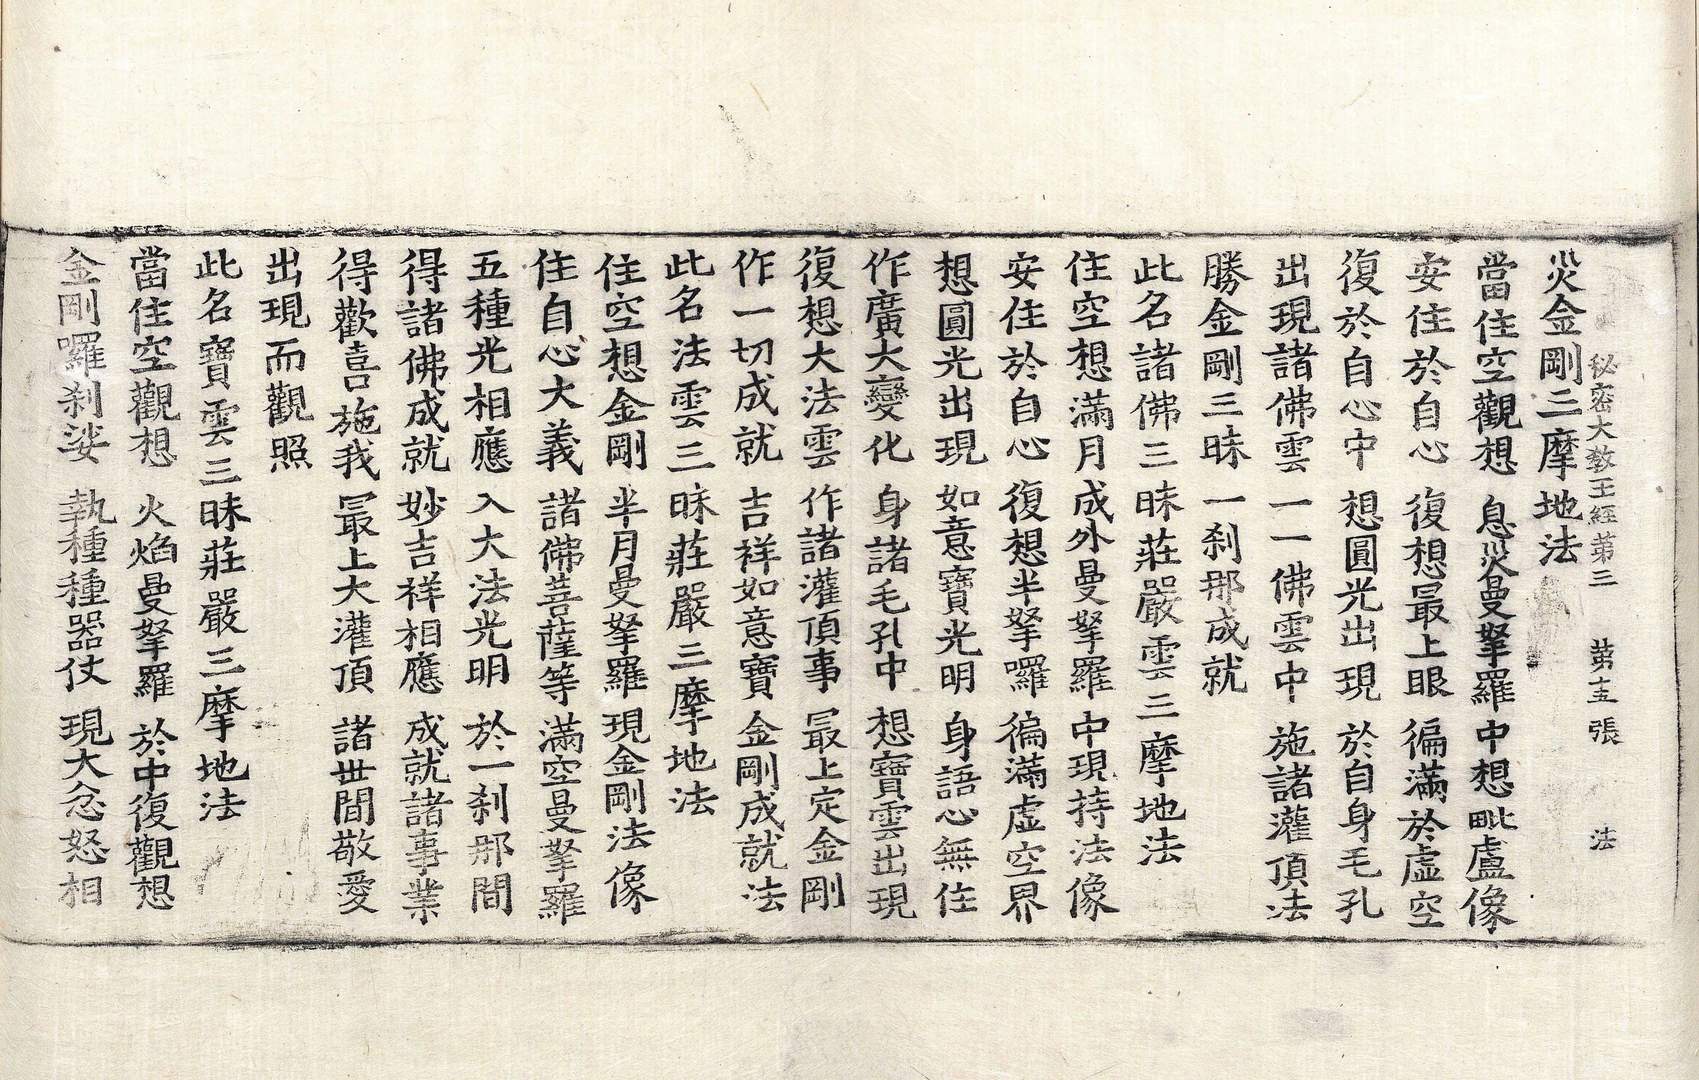 秘密大教王經第三　第十五張　法
災金剛三摩地法
當住空觀想　息災曼拏羅　中想毗盧像
安住於自心　復想最上眼　徧滿於虛空
復於自心中　想圓光出現　於自身毛孔
出現諸佛雲　一一佛雲中　施諸灌頂法
勝金剛三昧　一剎那成就
此名諸佛三昧莊嚴雲三摩地法
住空想滿月　成外曼拏羅　中現持法像
安住於自心　復想半拏囉　徧滿虛空界
想圓光出現　如意寶光明　身語心無住
作廣大變化　身諸毛孔中　想寶雲出現
復想大法雲　作諸灌頂事　最上定金剛
作一切成就　吉祥如意寶　金剛成就法
此名法雲三昧莊嚴三摩地法
住空想金剛　半月曼拏羅　現金剛法像
住自心大義　諸佛菩薩等　滿空曼拏羅
五種光相應　入大法光明　於一剎那間
得諸佛成就　妙吉祥相應　成就諸事業
得歡喜施我　最上大灌頂　諸世間敬愛
出現而觀照
此名寶雲三昧莊嚴三摩地法
當住空觀想　火焰曼拏羅　於中復觀想
金剛囉剎娑　執種種器仗　現大忿怒相